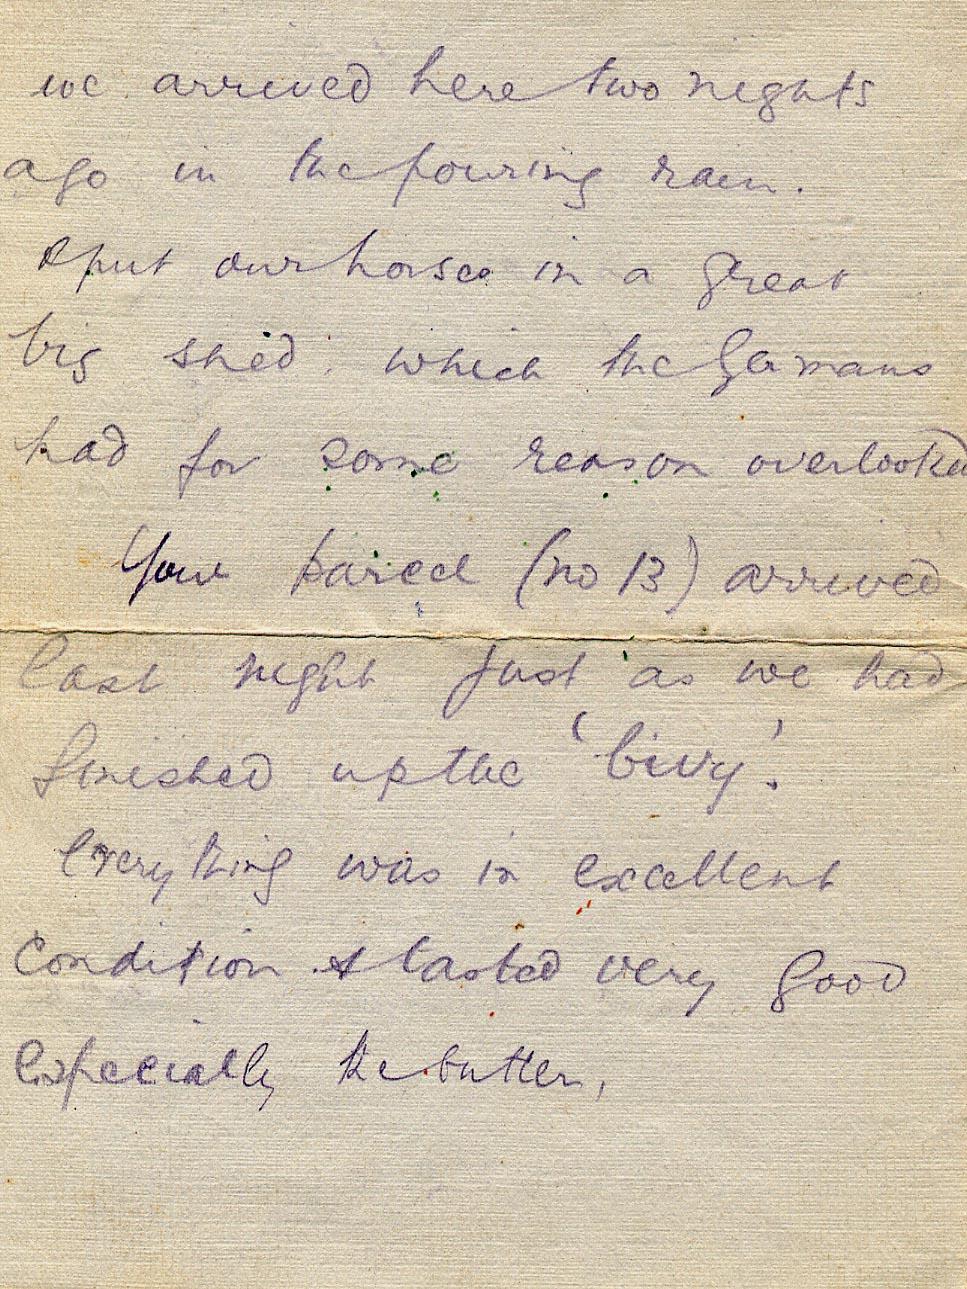 we arrived here two nights
ago in the pouring rain.
& put our horses in a great
big shed. which the Germans
had for some reason overlooked
Your parcel (no 13) arrived
last night just as we had
finished up the 'bivvy'.
Everything was in excellent
condition & tasted very good
especially the butter,